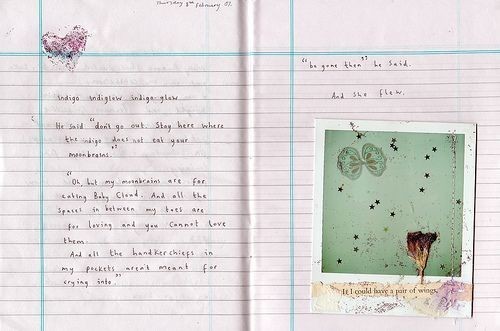 Thursday 8th February 07.
indigo indiglow indigo glow
He said "don't go out. Stay here where
the indigo does not eat your
moonbrains."
"Oh, but my moonbrains are for
eating Baby Cloud. And all the
spaces in between my toes are
for loving and you cannot love
them.
And all the handkerchiefs in
my pockets aren't meant for
crying into."
"be gone then" he said.
And she flew.
If I could have a pair of wings,